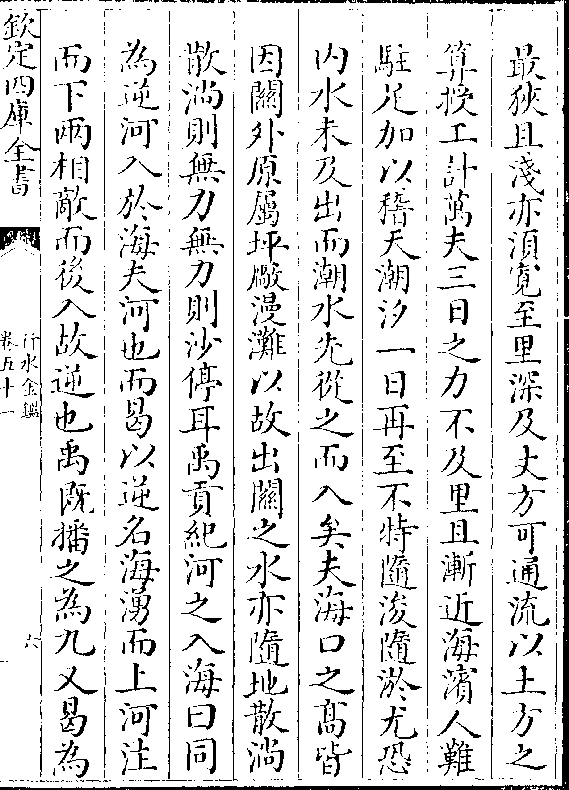 最狹且淺亦須寛至里深及丈方可通流以土方之
算授工計萬夫三日之力不及里且漸近海濱人難
駐足加以稽天潮汐一日再至不特隨浚隨淤尤恐
内水未及出而潮水先從之而入矣夫海口之髙皆
因關外原屬坪廠漫灘以故出關之水亦隨地散淌
散淌則無力無力則沙停耳禹貢紀河之入海曰同
為逆河入於海夫河也而曷以逆名海湧而上河注
而下兩相敵而後入故逆也禹既播之為九又曷為
欽定四庫全書
行水金鑑
卷五十一
六